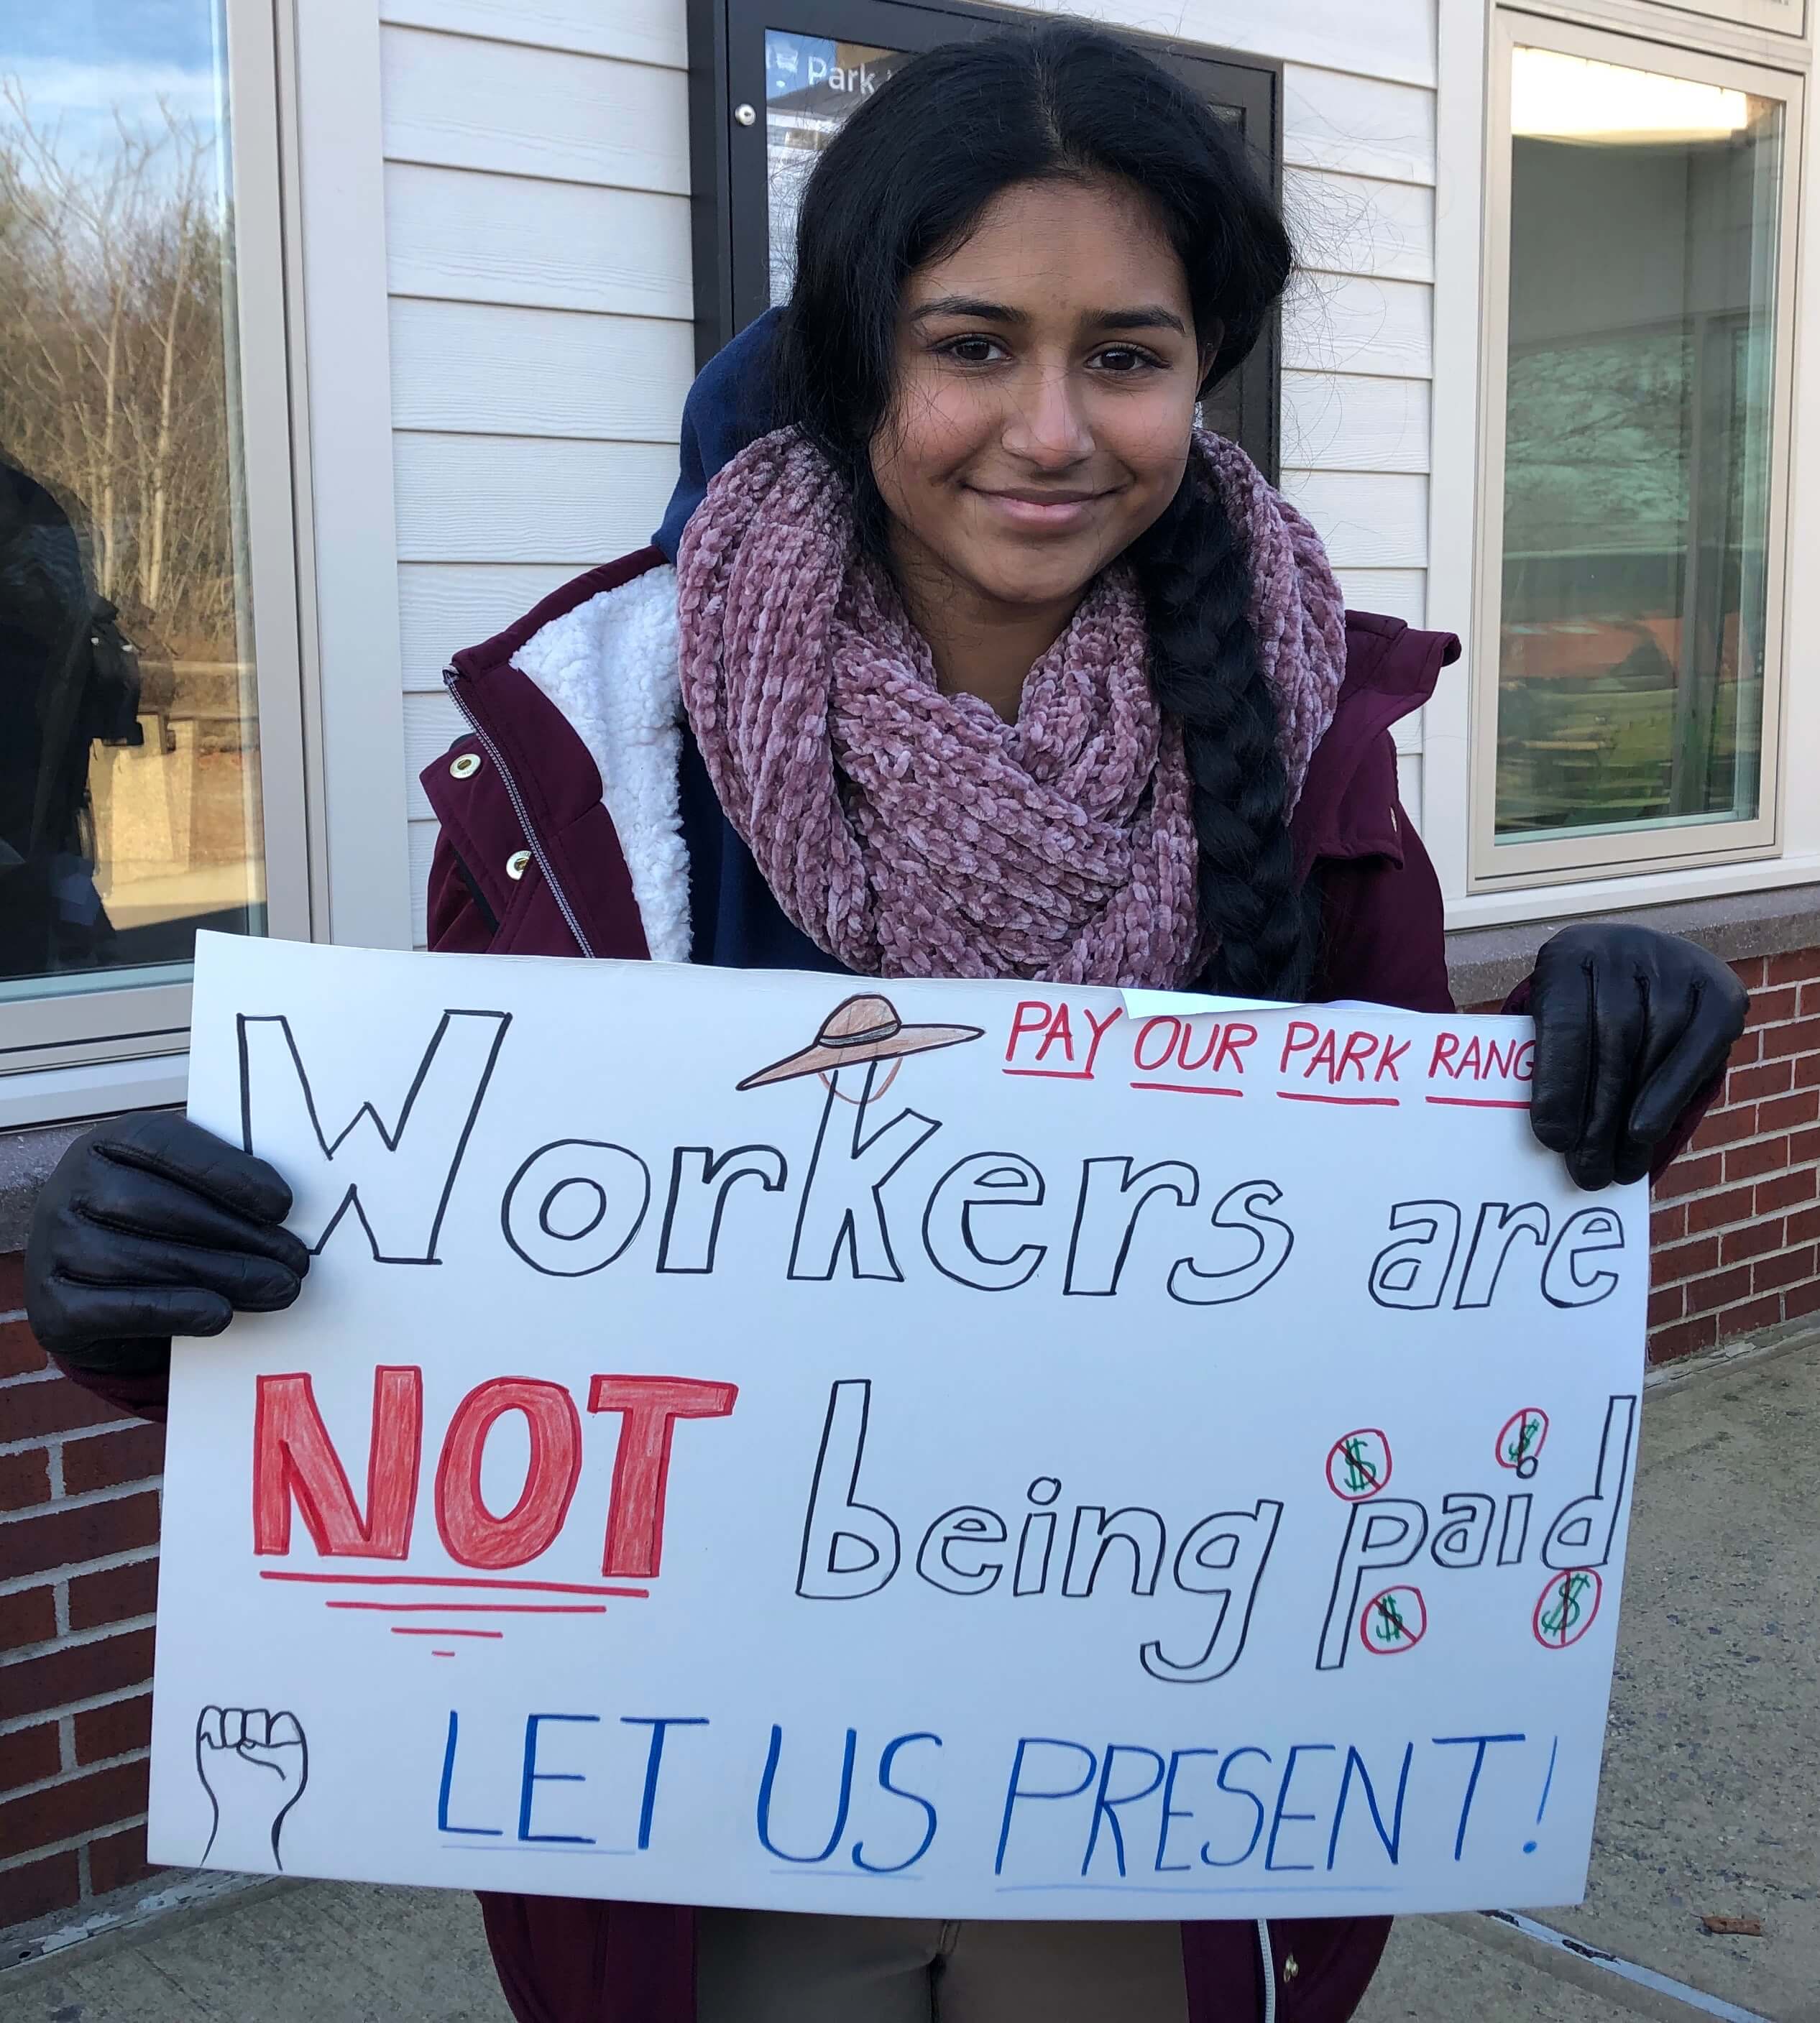 Park
PAY OUR PARK RANG
Workers are
NOT being paid
$ $ $ $
LET US PRESENT!